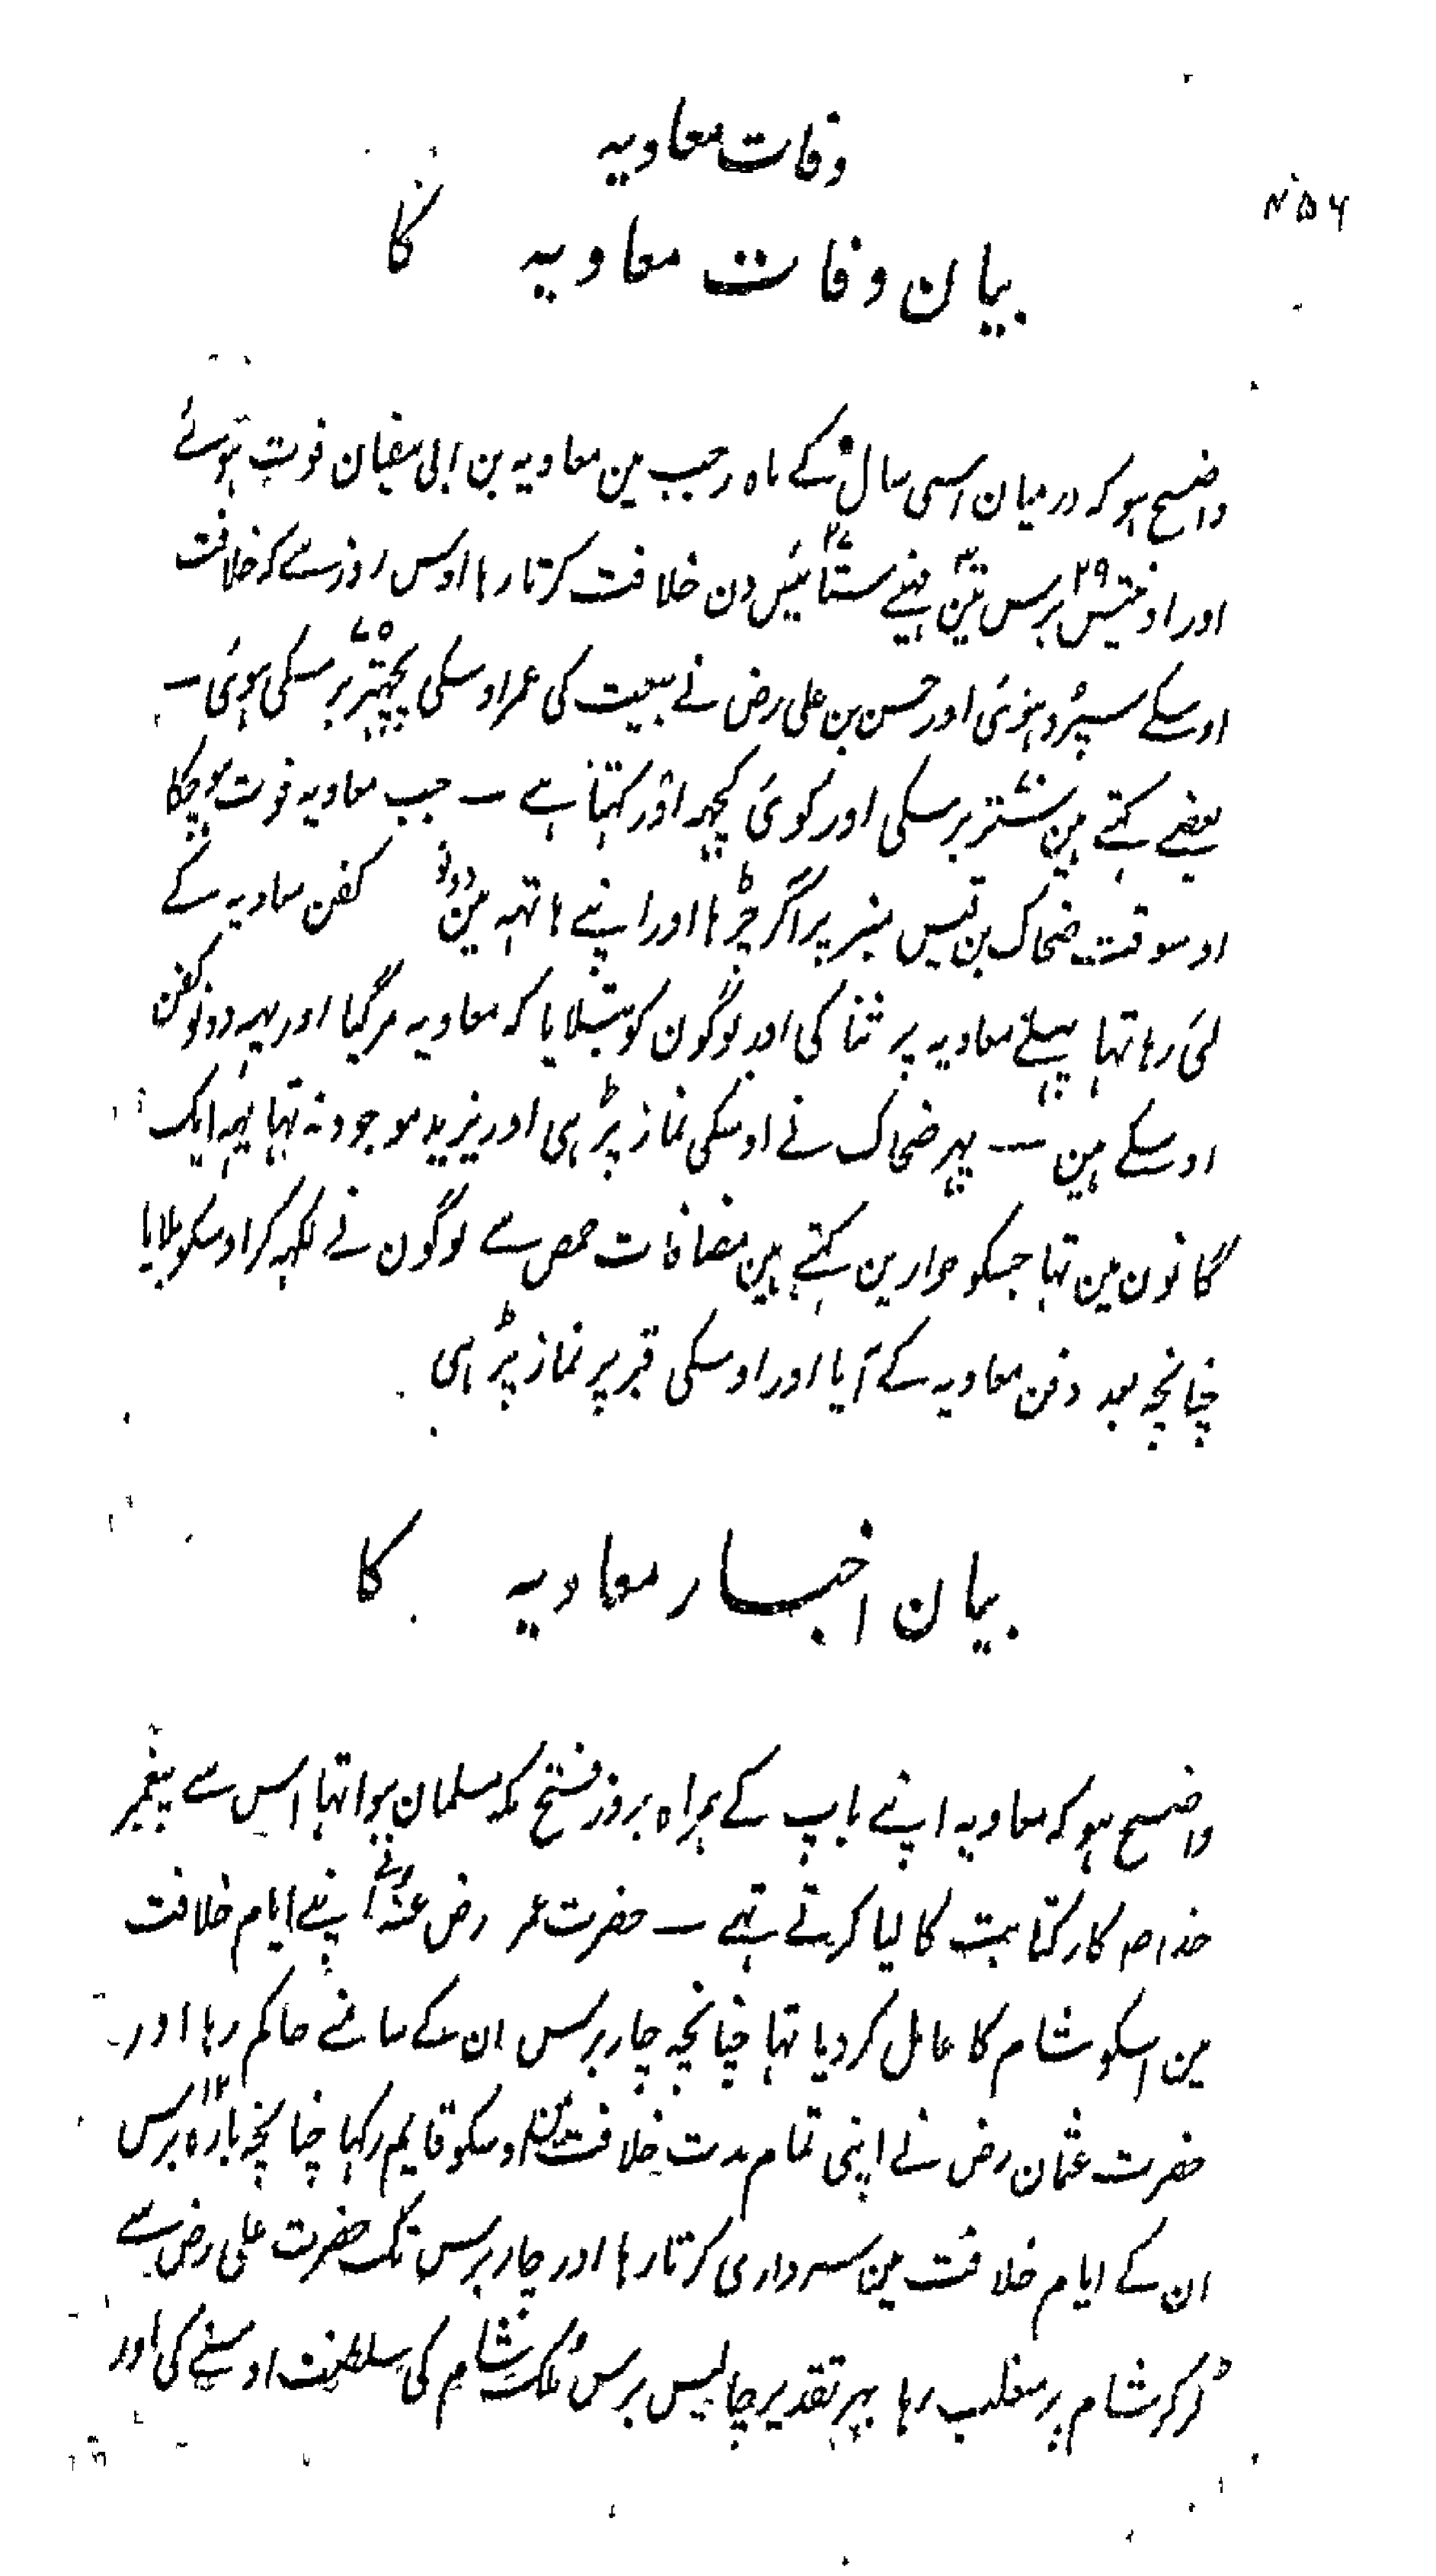 وفات معاویہ
۴۵۶
بیان وفات معاویہ کا
واضح ہو کہ درمیان اسی سال کے ماہ رجب مین معاویہ بن ابی سفیان فوت ہوئے
اور اونتیس ۲۹ برس تین ۳ مہینے ستائیس ۲۷ دن خلافت کرتا رہا اوس روز سے کہ خلافت
اوسکے سپرد ہوئی اور حسن بن علی رض نے بیعت کی عمر اوسکی پچہتر ۷۵ برسکی ہوئی ـ
بعضے کہتے ہین ستتر برسکی اور کوئی کچہہ اور کہتا ہے ـ جب معاویہ فوت ہوچکا
اوسوقت ضحاک بن قیس منبر پر آکر چڑہا اور اپنے ہاتہہ مین دونو کفن معاویہ کے
لئی رہا تہا پہلے معاویہ پر ثنا کی اور لوگون کو بتلایا کہ معاویہ مرگیا اور یہہ دونو کفن
اوسکے ہین ـ پہر ضحاک نے اوسکی نماز پڑہی اور یزید موجود نہ تہا یہہ ایک
گانون مین تہا جسکو حوارین کہتے ہین مضافات حمص سے لوگون نے لکہہ کر اوسکو بلایا
چنانچہ بعد دفن معاویہ کے آیا اور اوسکی قبر پر نماز پڑہی
بیان اخبار معاویہ کا
واضح ہو کہ معاویہ اپنے باپ کے ہمراہ بروز فتح مکہ مسلمان ہوا تہا اس سے پیغمبر
خدا صہ کار کتابت کا لیا کرتے تہے ـ حضرت عمر رض عنہ نے اپنے ایام خلافت
مین اسکو شام کا عامل کر دیا تہا چنانچہ چار برس ان کے سامنے حاکم رہا اور
حضرت عثمان رض نے اپنی تمام مدت خلافت مین اوسکو قایم رکہا چنانچہ بارہ ۱۲ برس
ان کے ایام خلافت مین سرداری کرتا رہا اور چار برس تک حضرت علی رض سے
لڑ کر شام پر متغلب رہا بہر تقدیر چالیس برس ملک شام کی سلطنت اوسنے کی اور